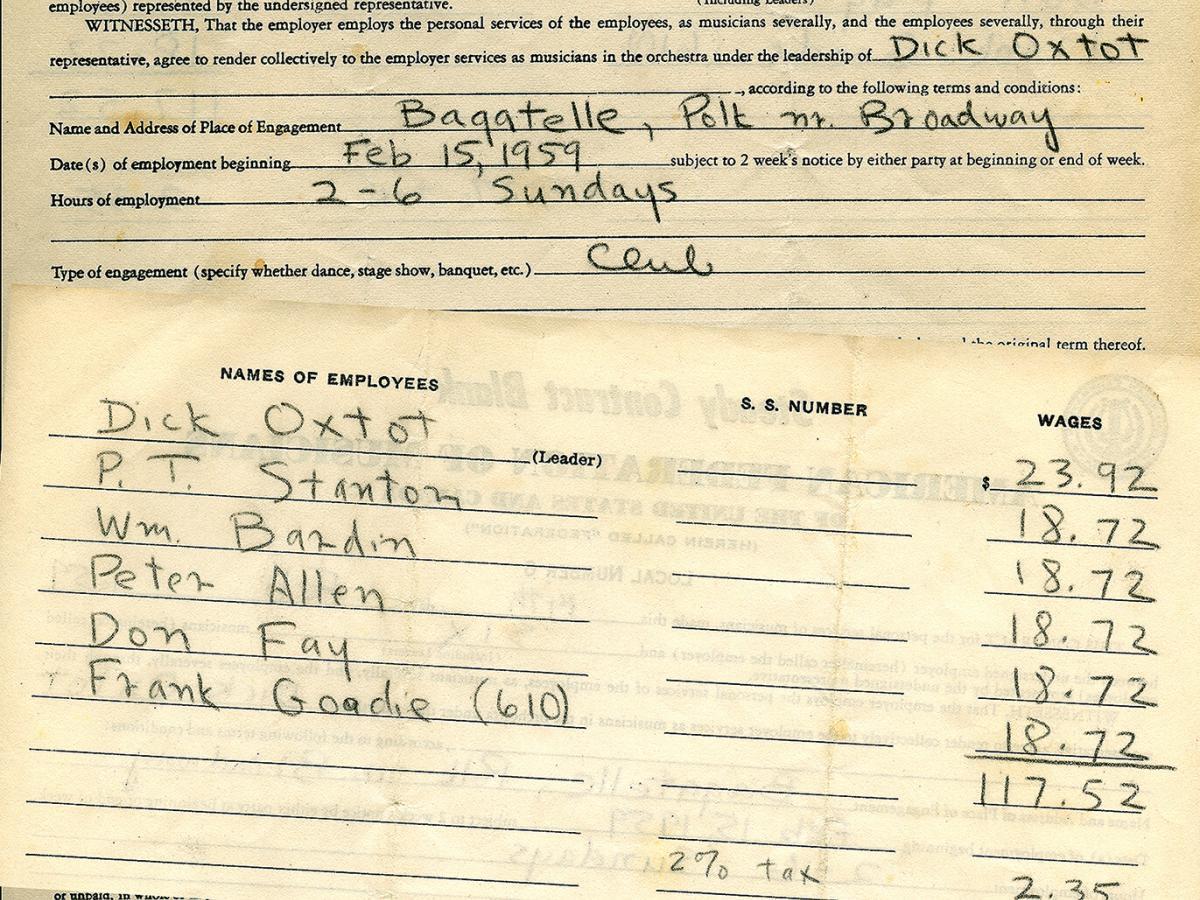 employees) represented by the undersigned representative.
WITNESSETH, That the employer employs the personal services of the employees, as musicians severally, and the employees severally, through their
representative, agree to render collectively to the employer services as musicians in the orchestra under the leadership of Dick Oxtot
, according to the following terms and conditions:
Name and Address of Place of Engagement Bagatelle, Polk nr. Broadway
Date(s) of employment beginning Feb 15, 1959 subject to 2 week's notice by either party at beginning or end of week.
Hours of employment 2-6 Sundays
Type of engagement (specify whether dance, stage show, banquet, etc.) Club
original term thereof.
NAMES OF EMPLOYEES S. S. NUMBER WAGES
Dick Oxtot (Leader) $ 23.92
P. T. Stanton 18.72
Wm. Bardin 18.72
Peter Allen 18.72
Don Fay 18.72
Frank Goadie (610) 18.72
117.52
2% tax 2.35